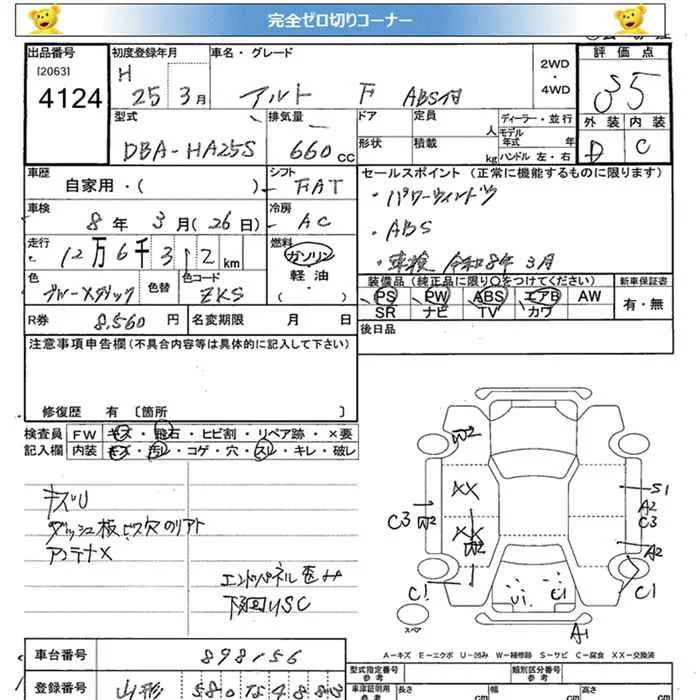 完全ゼロ切りコーナー
出品番号 初度登録年月 車名・グレード 2WD・4WD 評価点
[2063]
4124
H 25 3月 アルト F ABS付 35
型式 排気量 ドア 定員 人 ディーラー・並行 外装 内装
DBA-HA25S 660cc 形状 積載 kg モデル年式 年 ハンドル 左・右 D C
車歴 シフト セールスポイント (正常に機能するものに限ります)
自家用・( ) FAT ・パワーウィンドウ
車検 冷房
8年 3月(26日) AC ・ABS
走行 燃料
12万6千312km ガソリン・軽油・( ) ・車検 令和8年3月
色 色替 色コード 装備品(純正品に限り○をつけてください) 新車保証書
ブルーメタリック ZKS PS PW ABS エアB AW 有・無
SR ナビ TV カワ
R券 8,560円 名変期限 月 日 後日品
注意事項申告欄(不具合内容等は具体的に記入して下さい)
修復歴 有 〔箇所 〕
検査員 FW キズ・飛石・ヒビ割・リペア跡・×要
記入欄 内装 キズ・汚レ・コゲ・穴・スレ・キレ・破レ
キズU
ダッシュ板ビス穴のリアト
アンテナX
エンドパネル歪み
下回りSC
W2
XX
S1
A2
C3
C3 W2
XX
W2
A2
C1
C1
U1
C1
スペア
A1
A-キズ E-エクボ U-凹み W-補修跡 S-サビ C-腐食 XX-交換済
車台番号 898156 型式指定番号 類別区分番号
参考 参考
登録番号 山形 580 車庫証明用 長さ cm 幅 cm 高さ cm
参考